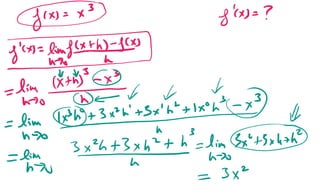 f(x) = x³
f'(x) = ?
f'(x) = lim h→0 f(x+h) - f(x) / h
= lim h→0 (x+h)³ - x³ / h
= lim h→0 1x³h⁰ + 3x²h¹ + 3x¹h² + 1x⁰h³ - x³ / h
= lim h→0 3x²h + 3xh² + h³ / h = lim h→0 3x² + 3xh + h²
= 3x²